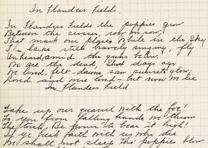 In Flanders Fields.
In Flanders Fields the poppies grow
Between the crosses, row on row,
That mark our place; while in the Sky
The larks still bravely singing, fly
Unheard, amid the guns below.
We are the dead, Short days ago
We lived, felt dawn, saw sunsets glow,
Loved and were loved - but now we lie
In Flanders Field
Take up our quarrel with the foe!
To you from failing hands we throw
The torch; be yours to bear it high!
If ye break faith with us who die
We shall not sleep tho poppies blow